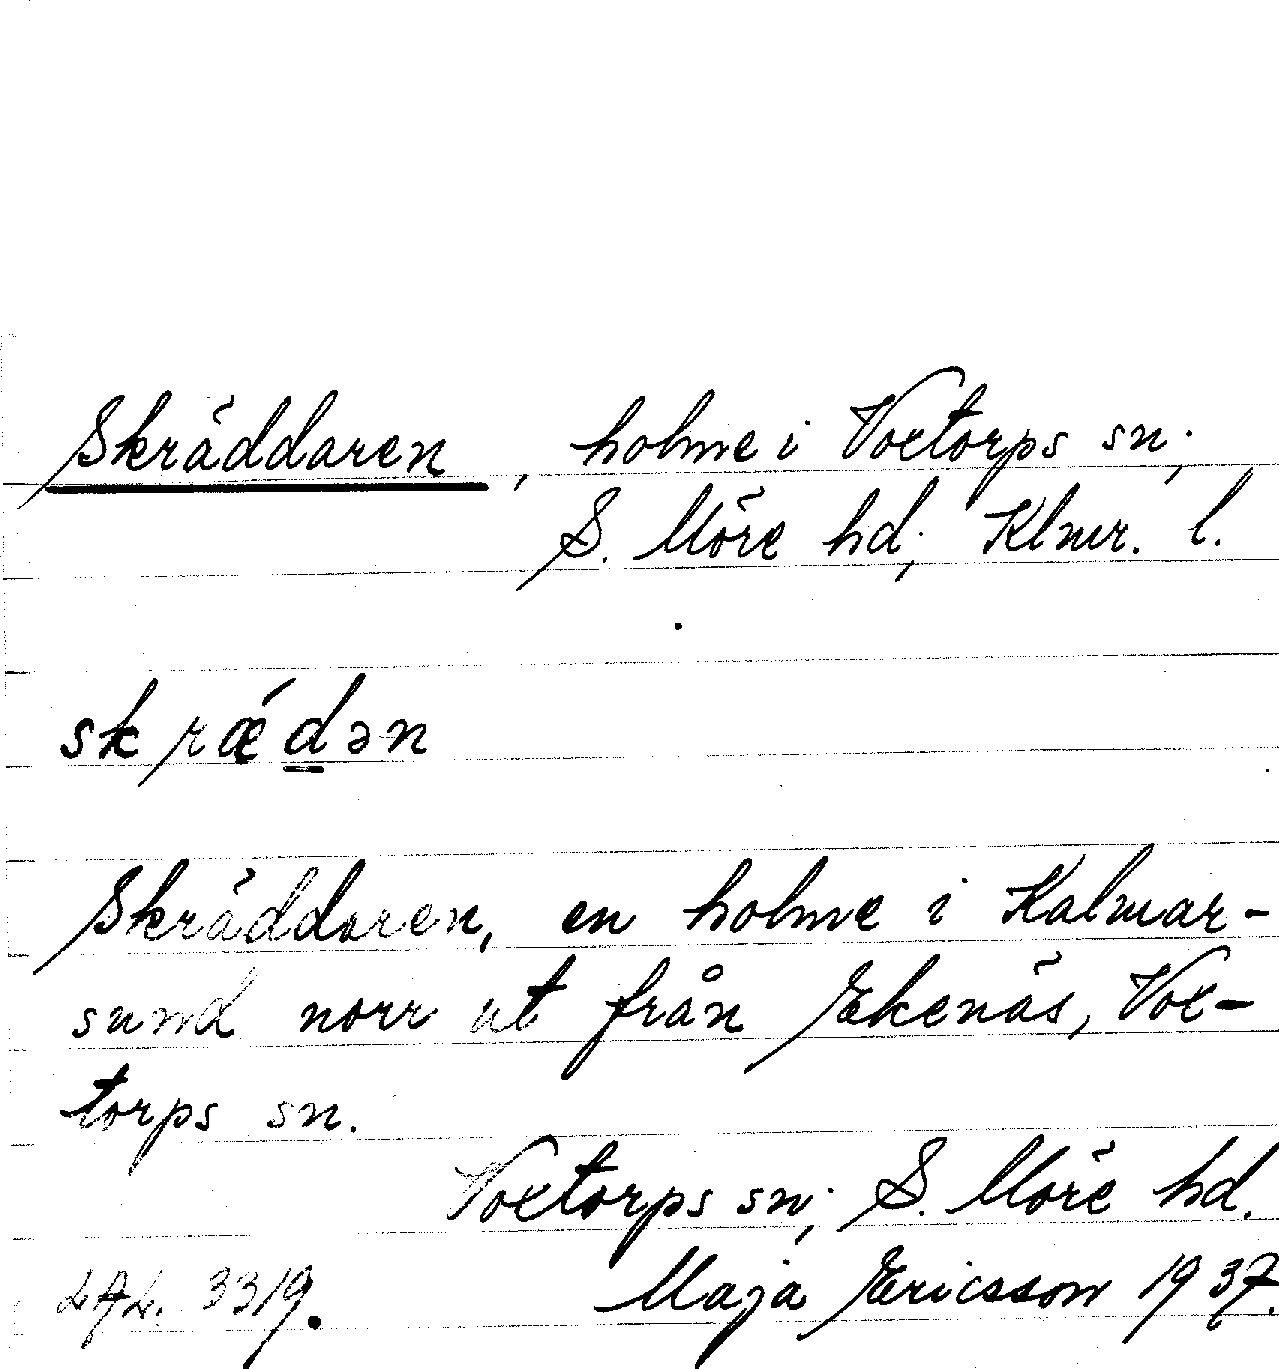 Skräddaren, holme i Voxtorps sn;
S. Möre hd; Klmr. l.
skrǽdən
Skräddaren, en holme i Kalmar-
sund norr ut från Ekenäs, Vox-
torps sn.
Voxtorps sn; S. Möre hd.
LAL. 3319. Maja Ericsson 1937.